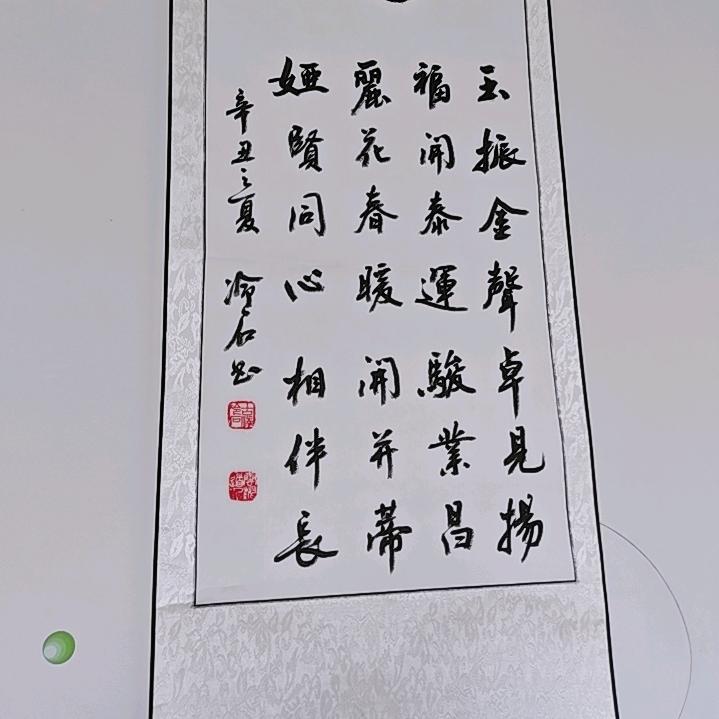 玉振金聲卓見揚
福開泰運駿業昌
麗花春暖開并蒂
婭賢同心相伴長
辛丑之夏 冷石书